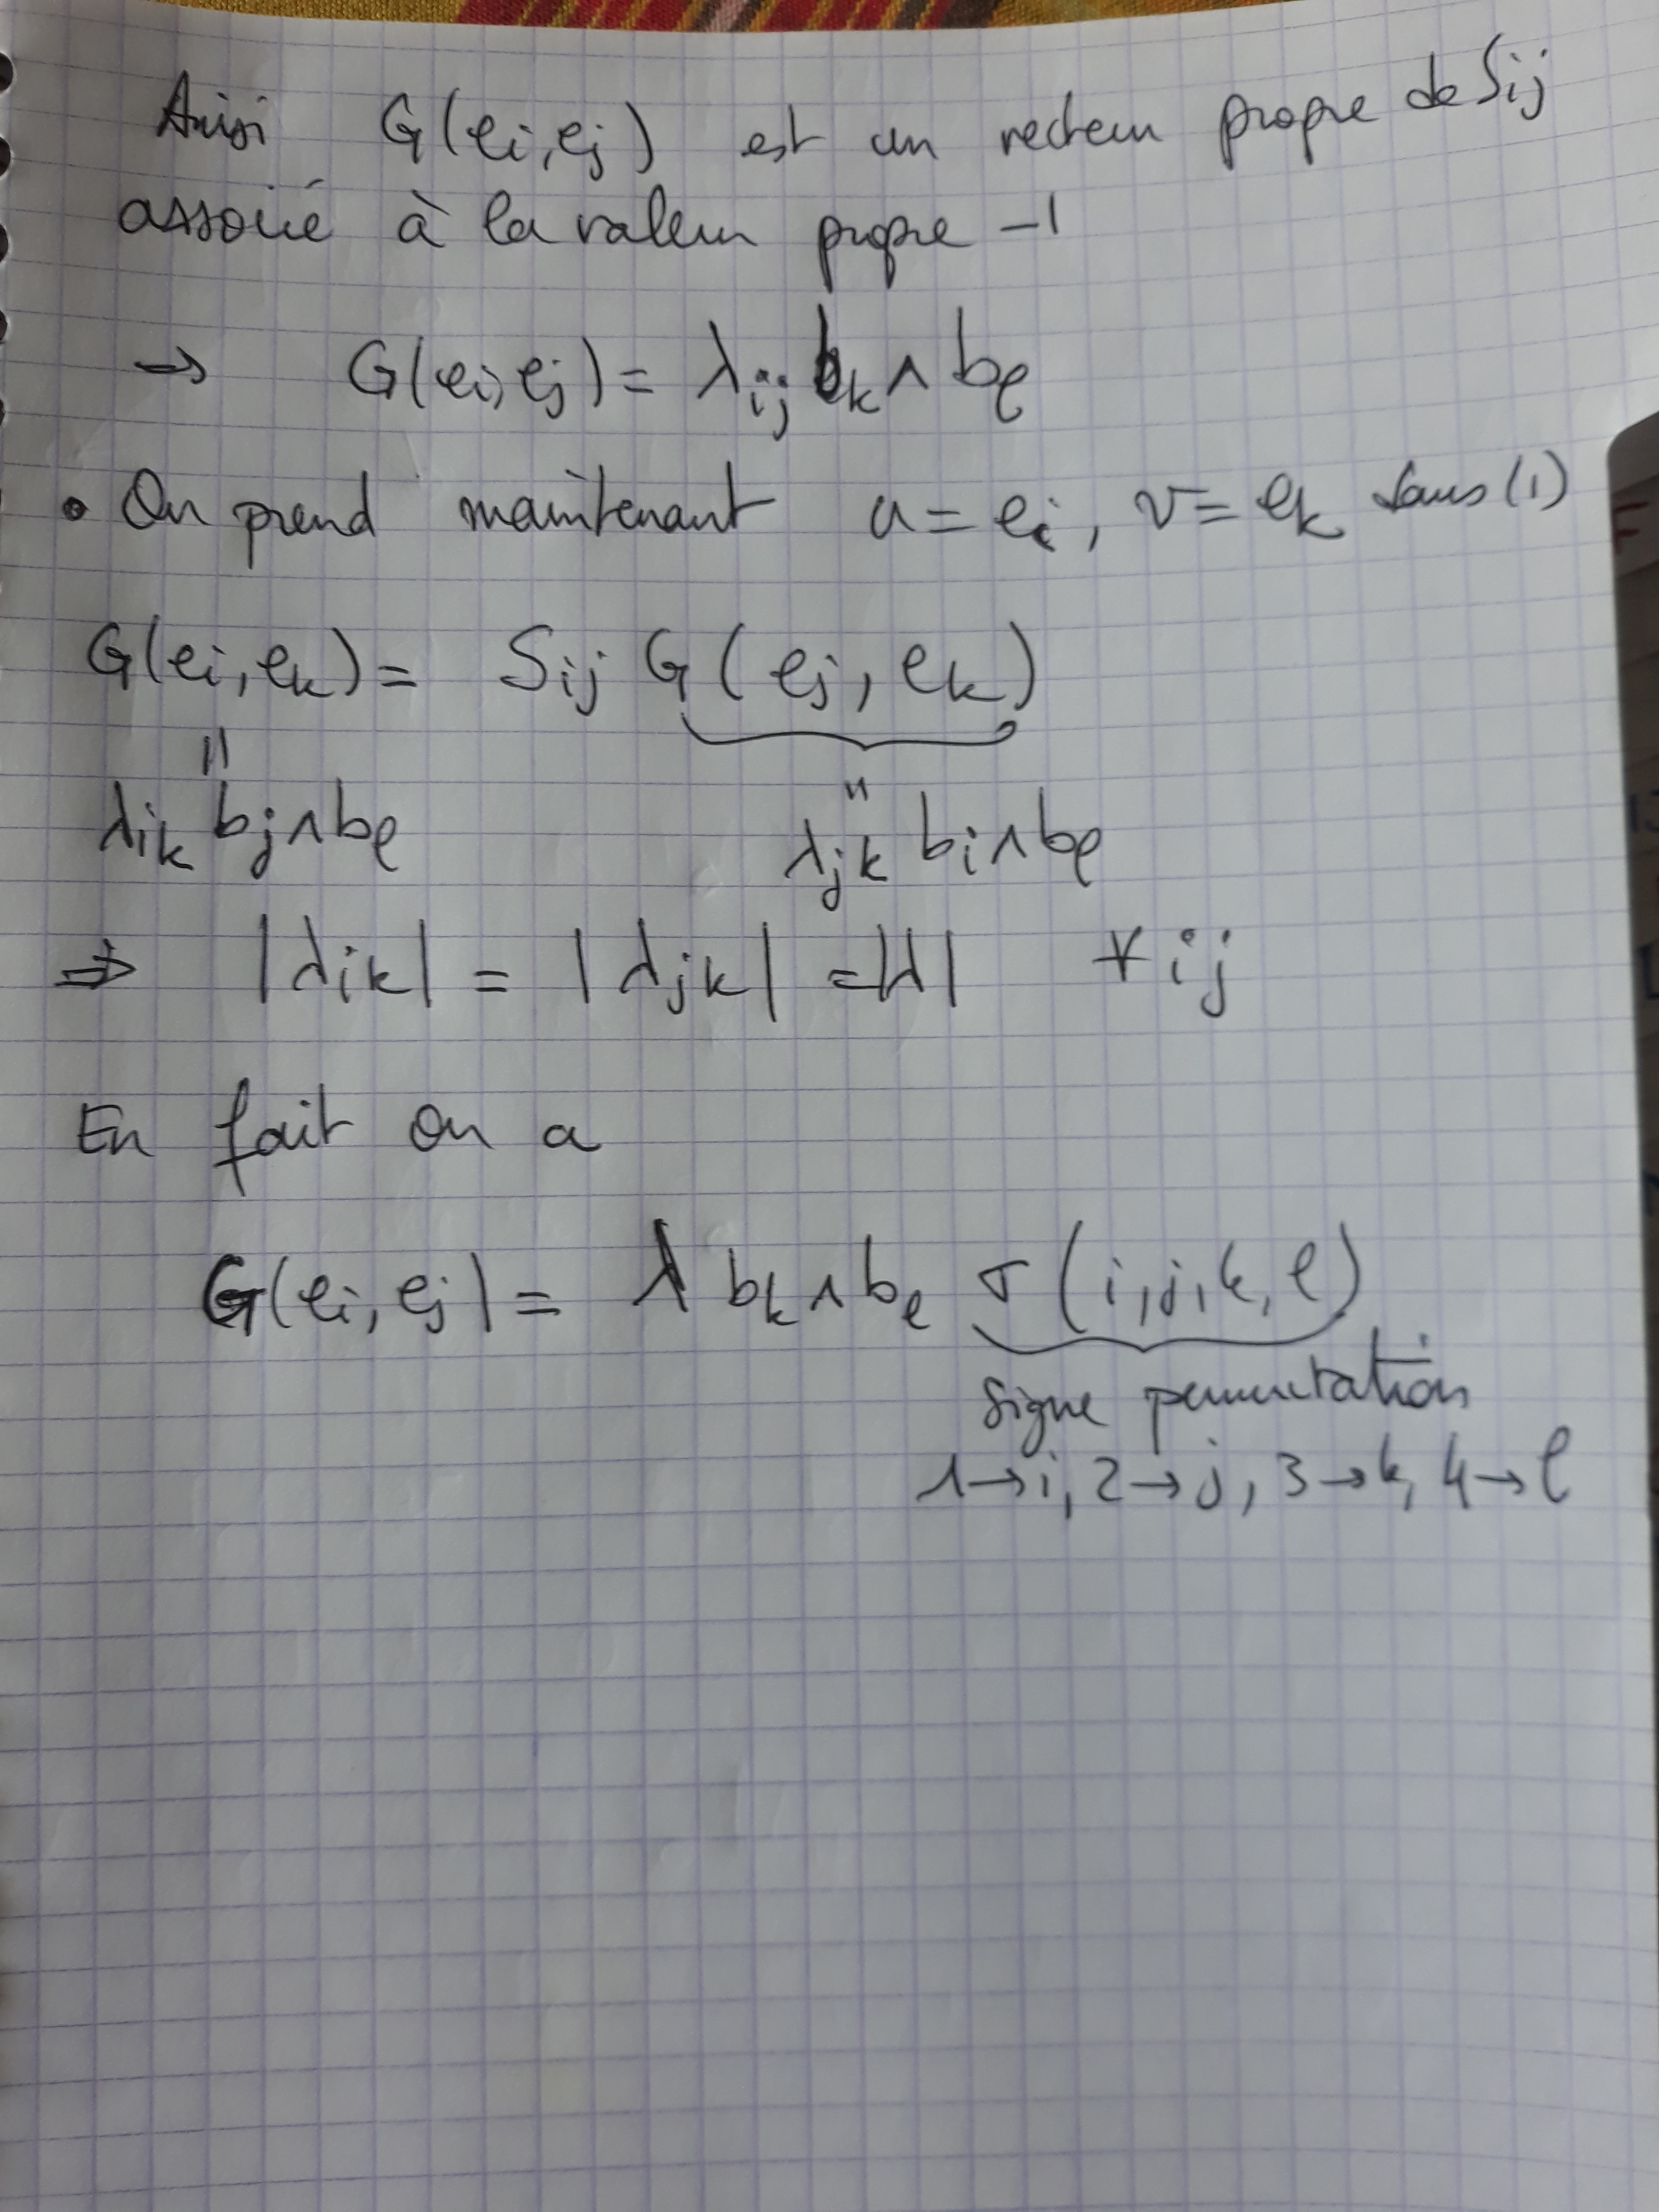 Ainsi G(ei, ej) est un vecteur propre de Sij
associé à la valeur propre -1
→ G(ei, ej) = λij bk ∧ bℓ
• On prend maintenant u = ei, v = ek dans (1)
G(ei, ek) = Sij G(ej, ek)
λik bj ∧ bℓ λjk bi ∧ bℓ
⇒ |λik| = |λjk| = |λ| ∀ ij
En fait on a
G(ei, ej) = λ bk ∧ bℓ σ(i, j, k, ℓ)
signe permutation
1→i, 2→j, 3→k, 4→ℓ